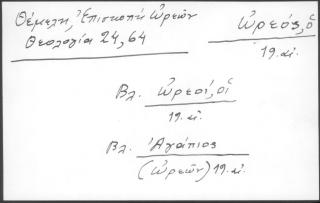 Θέμελη, Ἐπισκοπή Ὠρεῶν
Θεολογία 24, 64
Ὠρεός, ὁ
19. αἰ.
Βλ. Ὠρεοί, οἱ
19. αἰ.
Βλ. Ἀγάπιος
(Ὠρεῶν) 19. αἰ.